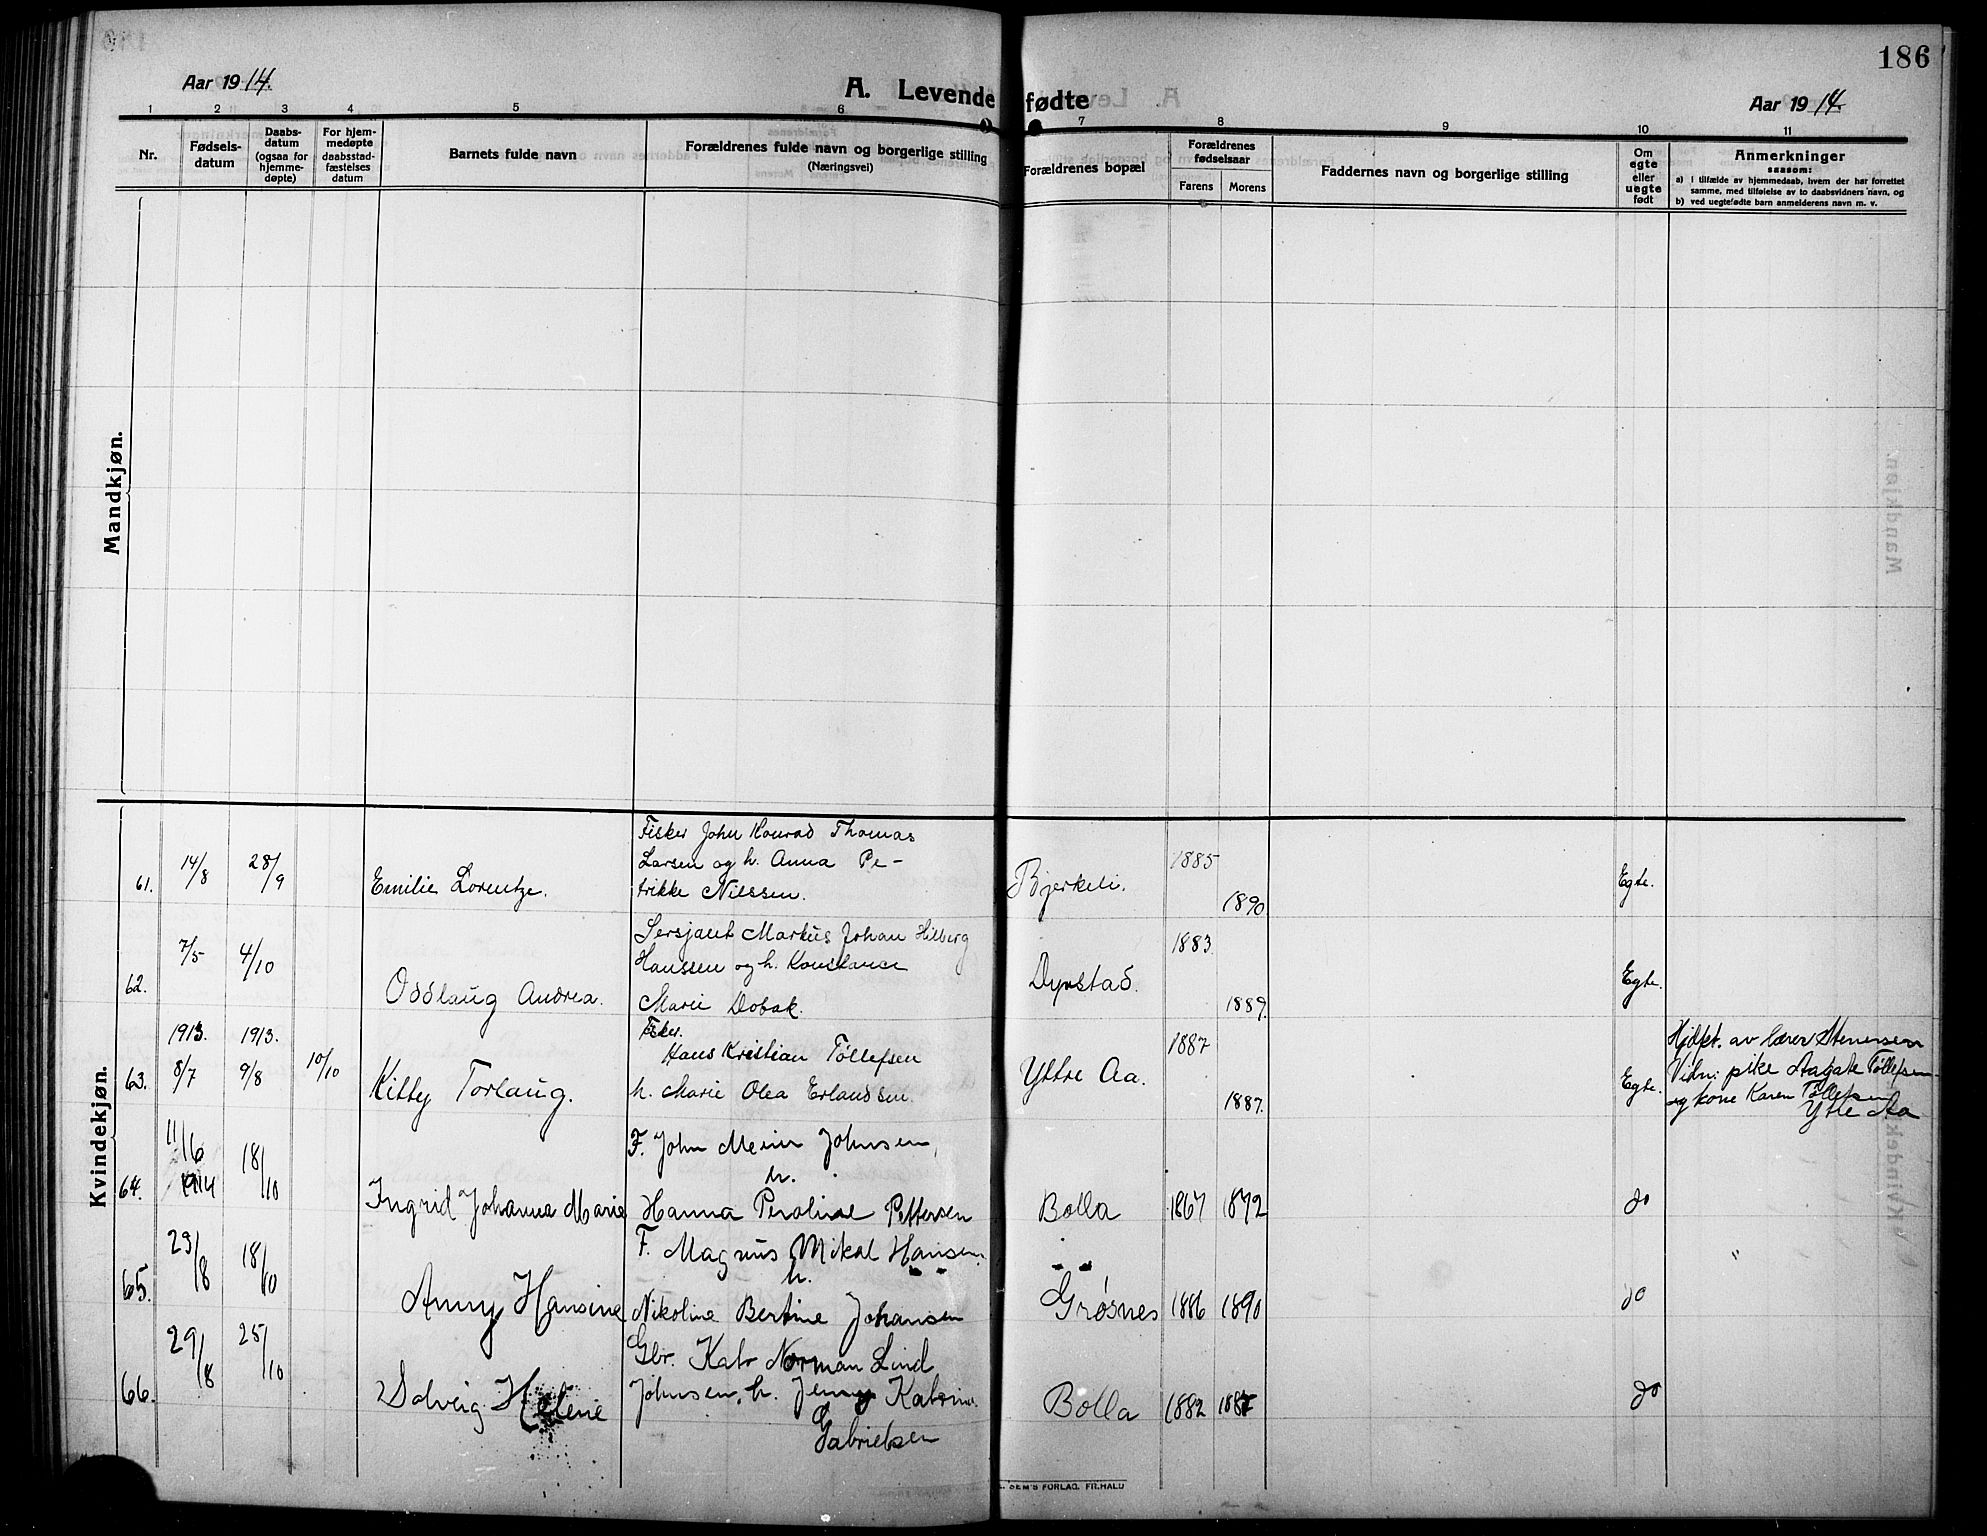 186
Aar 1914.
A. Levende fødte
Aar 1914.
1 2 3 4 5 6 7 8 9 10 11
Nr.
Fødsels-
datum
Daabs-
datum
(ogsaa for
hjemme-
døpte)
For hjem-
medøpte
daabsstad-
fæstelses
datum
Barnets fulde navn
Forældrenes fulde navn og borgerlige stilling
(Næringsvei)
Forældrenes bopæl
Forældrenes
fødselsaar
Farens Morens
Faddernes navn og borgerlige stilling
Om
egte
eller
uegte
født
Anmerkninger
saasom:
a) i tilfælde av hjemmedaab, hvem der har forrettet
samme, med tilføielse av to daabsvidners navn, og
b) ved uegtefødte barn anmelderens navn m. v.
Mandkjøn.
Kvindekjøn.
61. 14/8 28/9 Emilie Lorentze.
Fisker John Konrad Thomas
Larsen og h. Anna Pe-
trikke Nilssen.
Bjerkeli. 1885 1890. Egte.
62. 7/5 4/10 Oddlaug Andrea.
Sersjant Markus Johan Hilberg
Hanssen og h. Konstance
Marie Dobak.
Dyrstad. 1883. 1889. Egte.
63. 1913. 8/7 1913. 9/8 10/10 Kitty Torlaug.
Fisker.
Hans Kristian Tøllefsen
h. Marie Olea Erlandsen.
Yttre Aa. 1887 1887. Egte.
Hjdpt. av lærer Stenersen
Vidn: pike Aagate Tøllefsen
og kone Karen Tøllefsen
Ytre Aa
64. 11/6 1914 18/10 Ingrid Johanna Marie
F. John Meier Johnsen,
h.
Hanna Peroline Pettersen
Bolla 1867 1872 do
65. 23/8 18/10 Anny Hansine
F. Magnus Mikal Hansen.
h.
Nikoline Bertine Johansen
Grøsnes 1886 1890 do
66. 29/8 25/10 Solveig Helene
Gbr. Kato Norman Lind
Johnsen, h. Jenny Katrine
Gabrielsen
Bolla 1882 1887 do
SEM'S FORLAG. FR.HALD